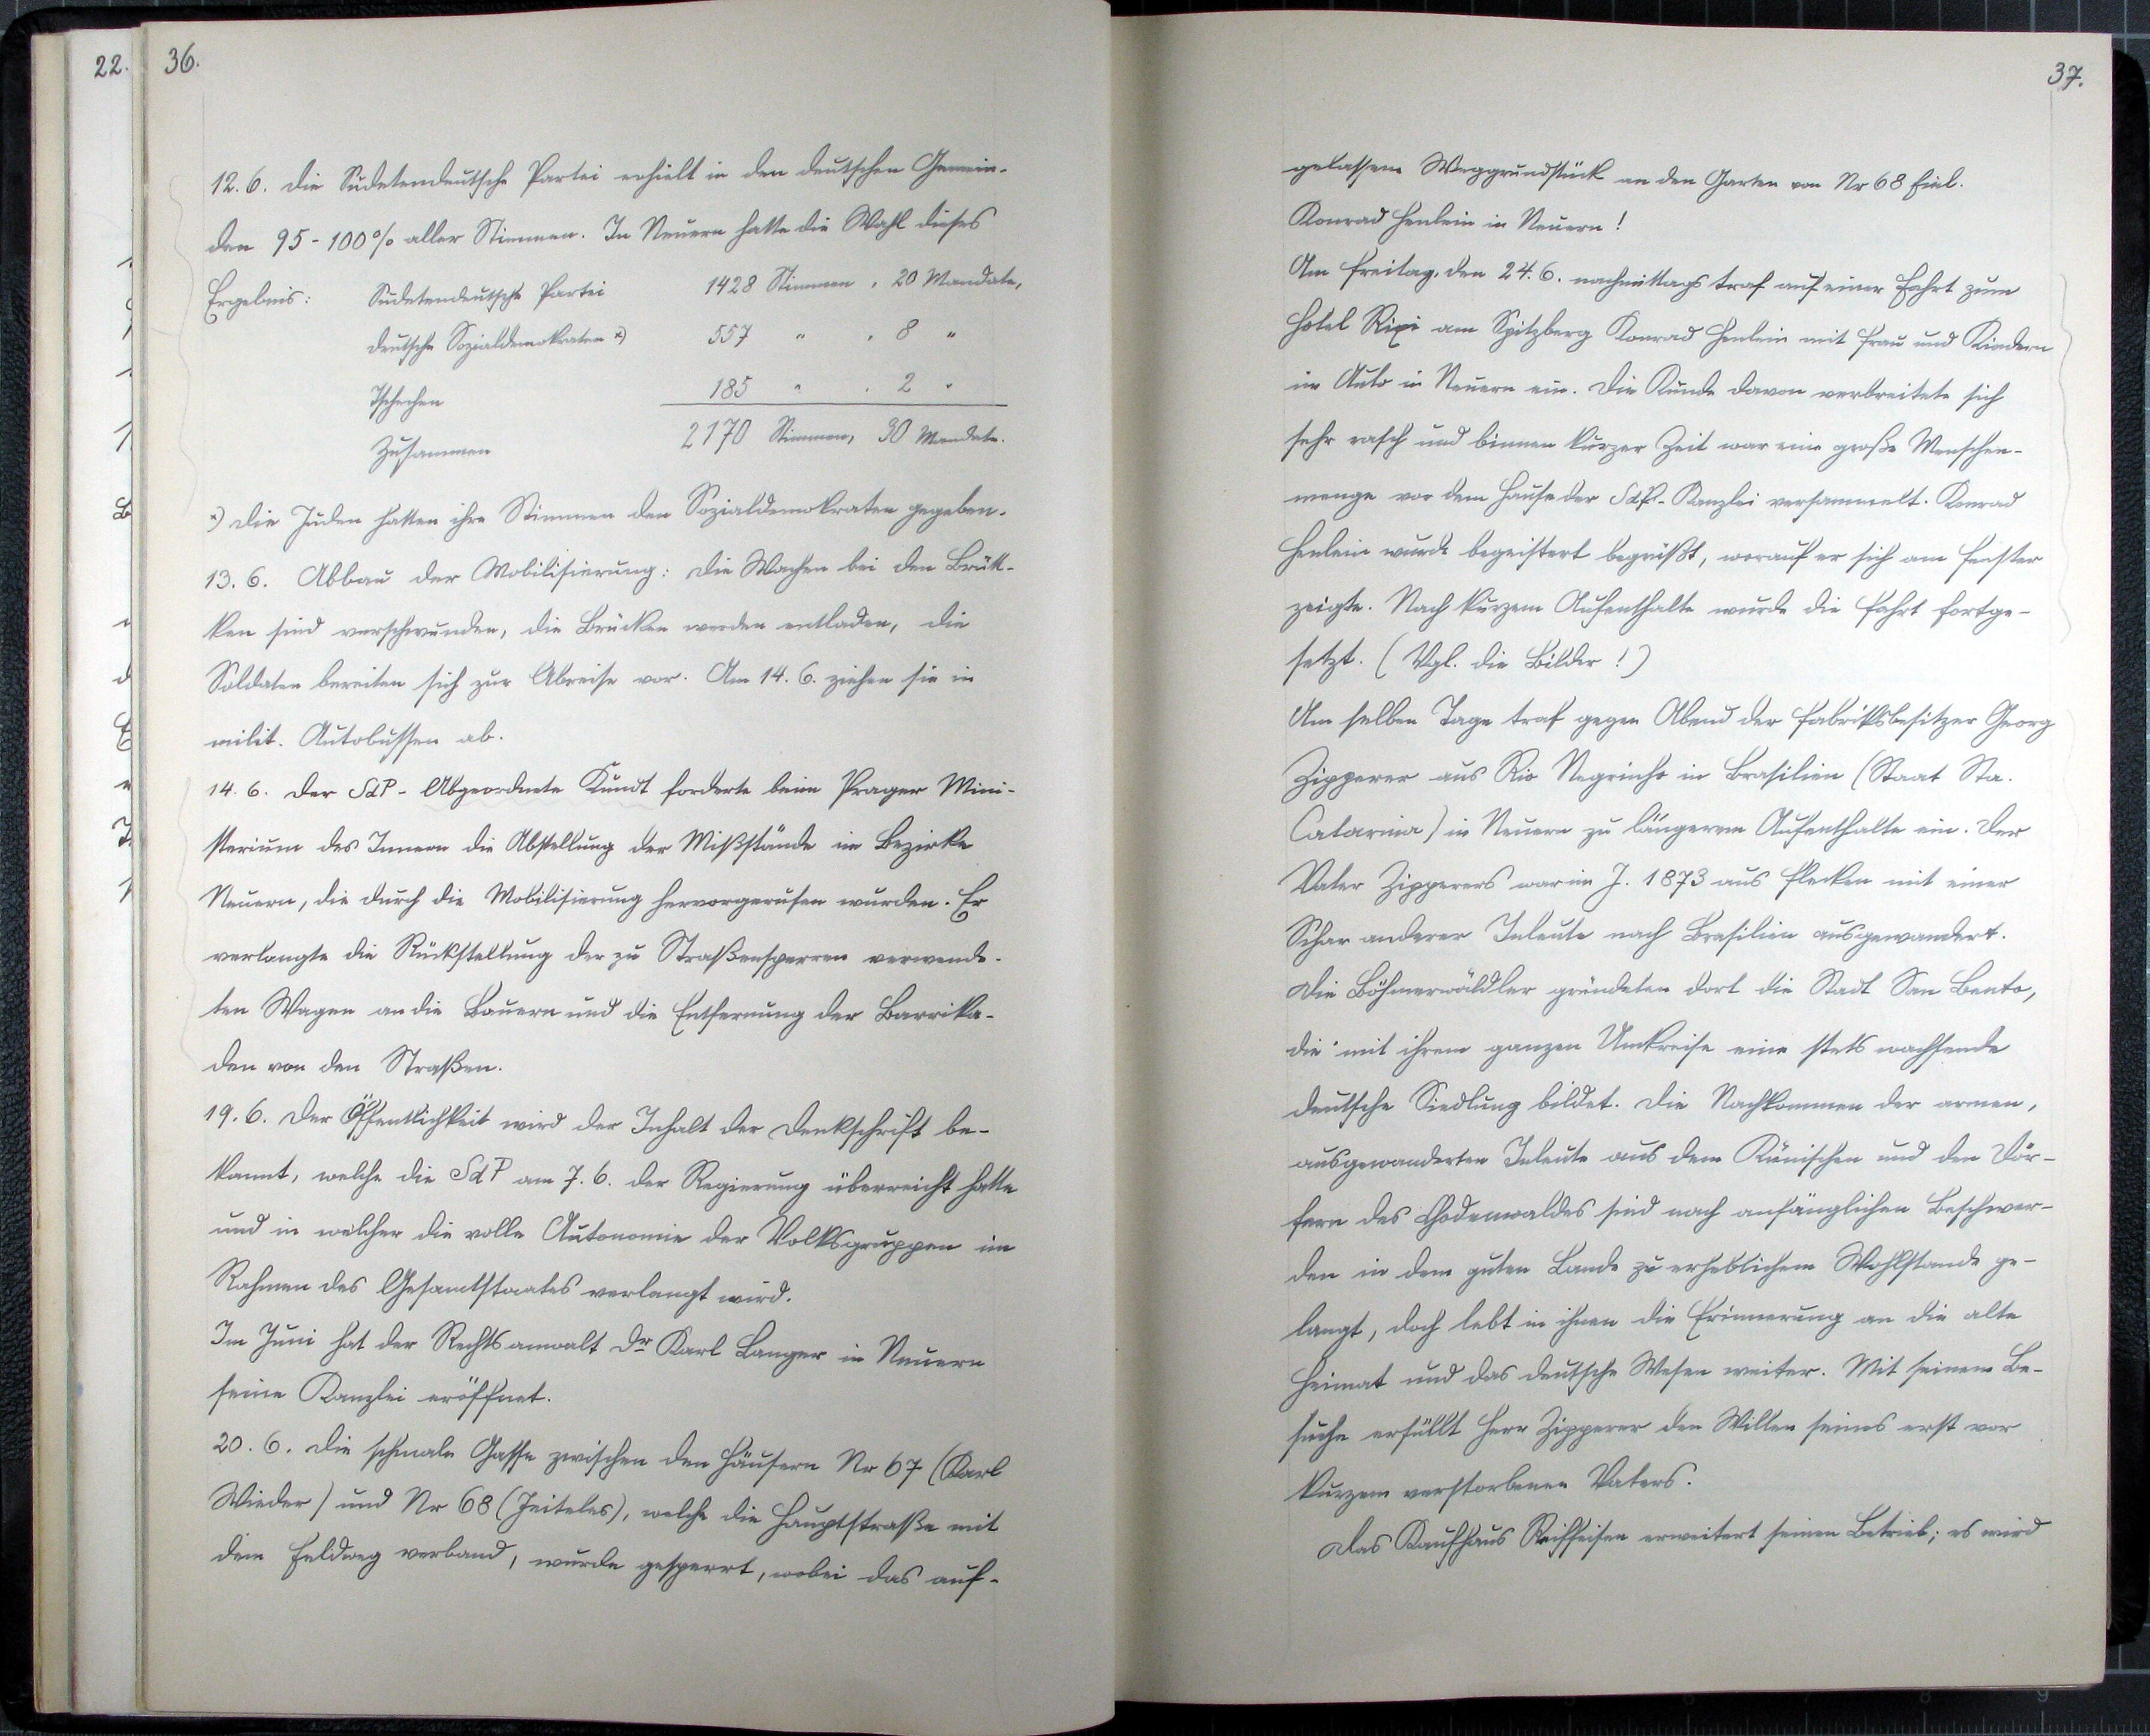 22.
36.
12.6. Die Sudetendeutsche Partei erhielt in den deutschen Gemein-
den 95-100% aller Stimmen. In Neuern hatte die Wahl dieses
Ergebnis: Sudetendeutsche Partei 1428 Stimmen, 20 Mandate,
deutsche Sozialdemokraten x) 557 " , 8 "
Tschechen 185 " , 2 "
Zusammen 2170 Stimmen, 30 Mandate.
x) Die Juden hatten ihre Stimmen den Sozialdemokraten gegeben.
13.6. Abbau der Mobilisierung: Die Wachen bei den Brük-
ken sind verschwunden, die Brücken werden entladen, die
Soldaten bereiten sich zur Abreise vor. Am 14.6. ziehen sie in
milit. Autobussen ab.
14.6. Der SdP-Abgeordnete Kundt forderte beim Prager Mini-
sterium des Innern die Abstellung der Mißstände im Bezirke
Neuern, die durch die Mobilisierung hervorgerufen wurden. Er
verlangte die Rückstellung der zu Straßensperren verwende-
ten Wagen an die Bauern und die Entfernung der Barrika-
den von den Straßen.
19.6. Der Öffentlichkeit wird der Inhalt der Denkschrift be-
kannt, welche die SdP am 7.6. der Regierung überreicht hatte
und in welcher die volle Autonomie der Volksgruppen im
Rahmen des Gesamtstaates verlangt wird.
Im Juni hat der Rechtsanwalt Dr Karl Langer in Neuern
seine Kanzlei eröffnet.
20.6. Die schmale Gasse zwischen den Häusern Nr 67 (Karl
Wieder) und Nr 68 (Jeiteles), welche die Hauptstraße mit
dem Feldweg verband, wurde gesperrt, wobei das auf-
37.
gelassene Weggrundstück an den Garten von Nr 68 fiel.
Konrad Henlein in Neuern!
Am Freitag, den 24.6. nachmittags traf auf einer Fahrt zum
Hotel Rixi am Spitzberg Konrad Henlein mit Frau und Kindern
im Auto in Neuern ein. Die Kunde davon verbreitete sich
sehr rasch und binnen kurzer Zeit war eine große Menschen-
menge vor dem Hause der SdP-Kanzlei versammelt. Konrad
Henlein wurde begeistert begrüßt, worauf er sich am Fenster
zeigte. Nach kurzem Aufenthalte wurde die Fahrt fortge-
setzt. (Vgl. die Bilder!)
Am selben Tage traf gegen Abend der Fabriksbesitzer Georg
Zipperer aus Rio Negrinho in Brasilien (Staat Sta.
Catarina) in Neuern zu längerem Aufenthalte ein. Der
Vater Zipperers war im J. 1873 aus Flecken mit einer
Schar anderer Inleute nach Brasilien ausgewandert.
Die Böhmerwäldler gründeten dort die Stadt San Bento,
die mit ihrem ganzen Umkreise eine stets wachsende
deutsche Siedlung bildet. Die Nachkommen der armen,
ausgewanderten Inleute aus dem Künischen und den Dör-
fern des Chodenwaldes sind nach anfänglichen Beschwer-
den in dem guten Lande zu erheblichem Wohlstande ge-
langt, doch lebt in ihnen die Erinnerung an die alte
Heimat und das deutsche Wesen weiter. Mit seinem Be-
suche erfüllt Herr Zipperer den Willen seines erst vor
kurzem verstorbenen Vaters.
Das Kaufhaus Reiffeisen erweitert seinen Betrieb; es wird